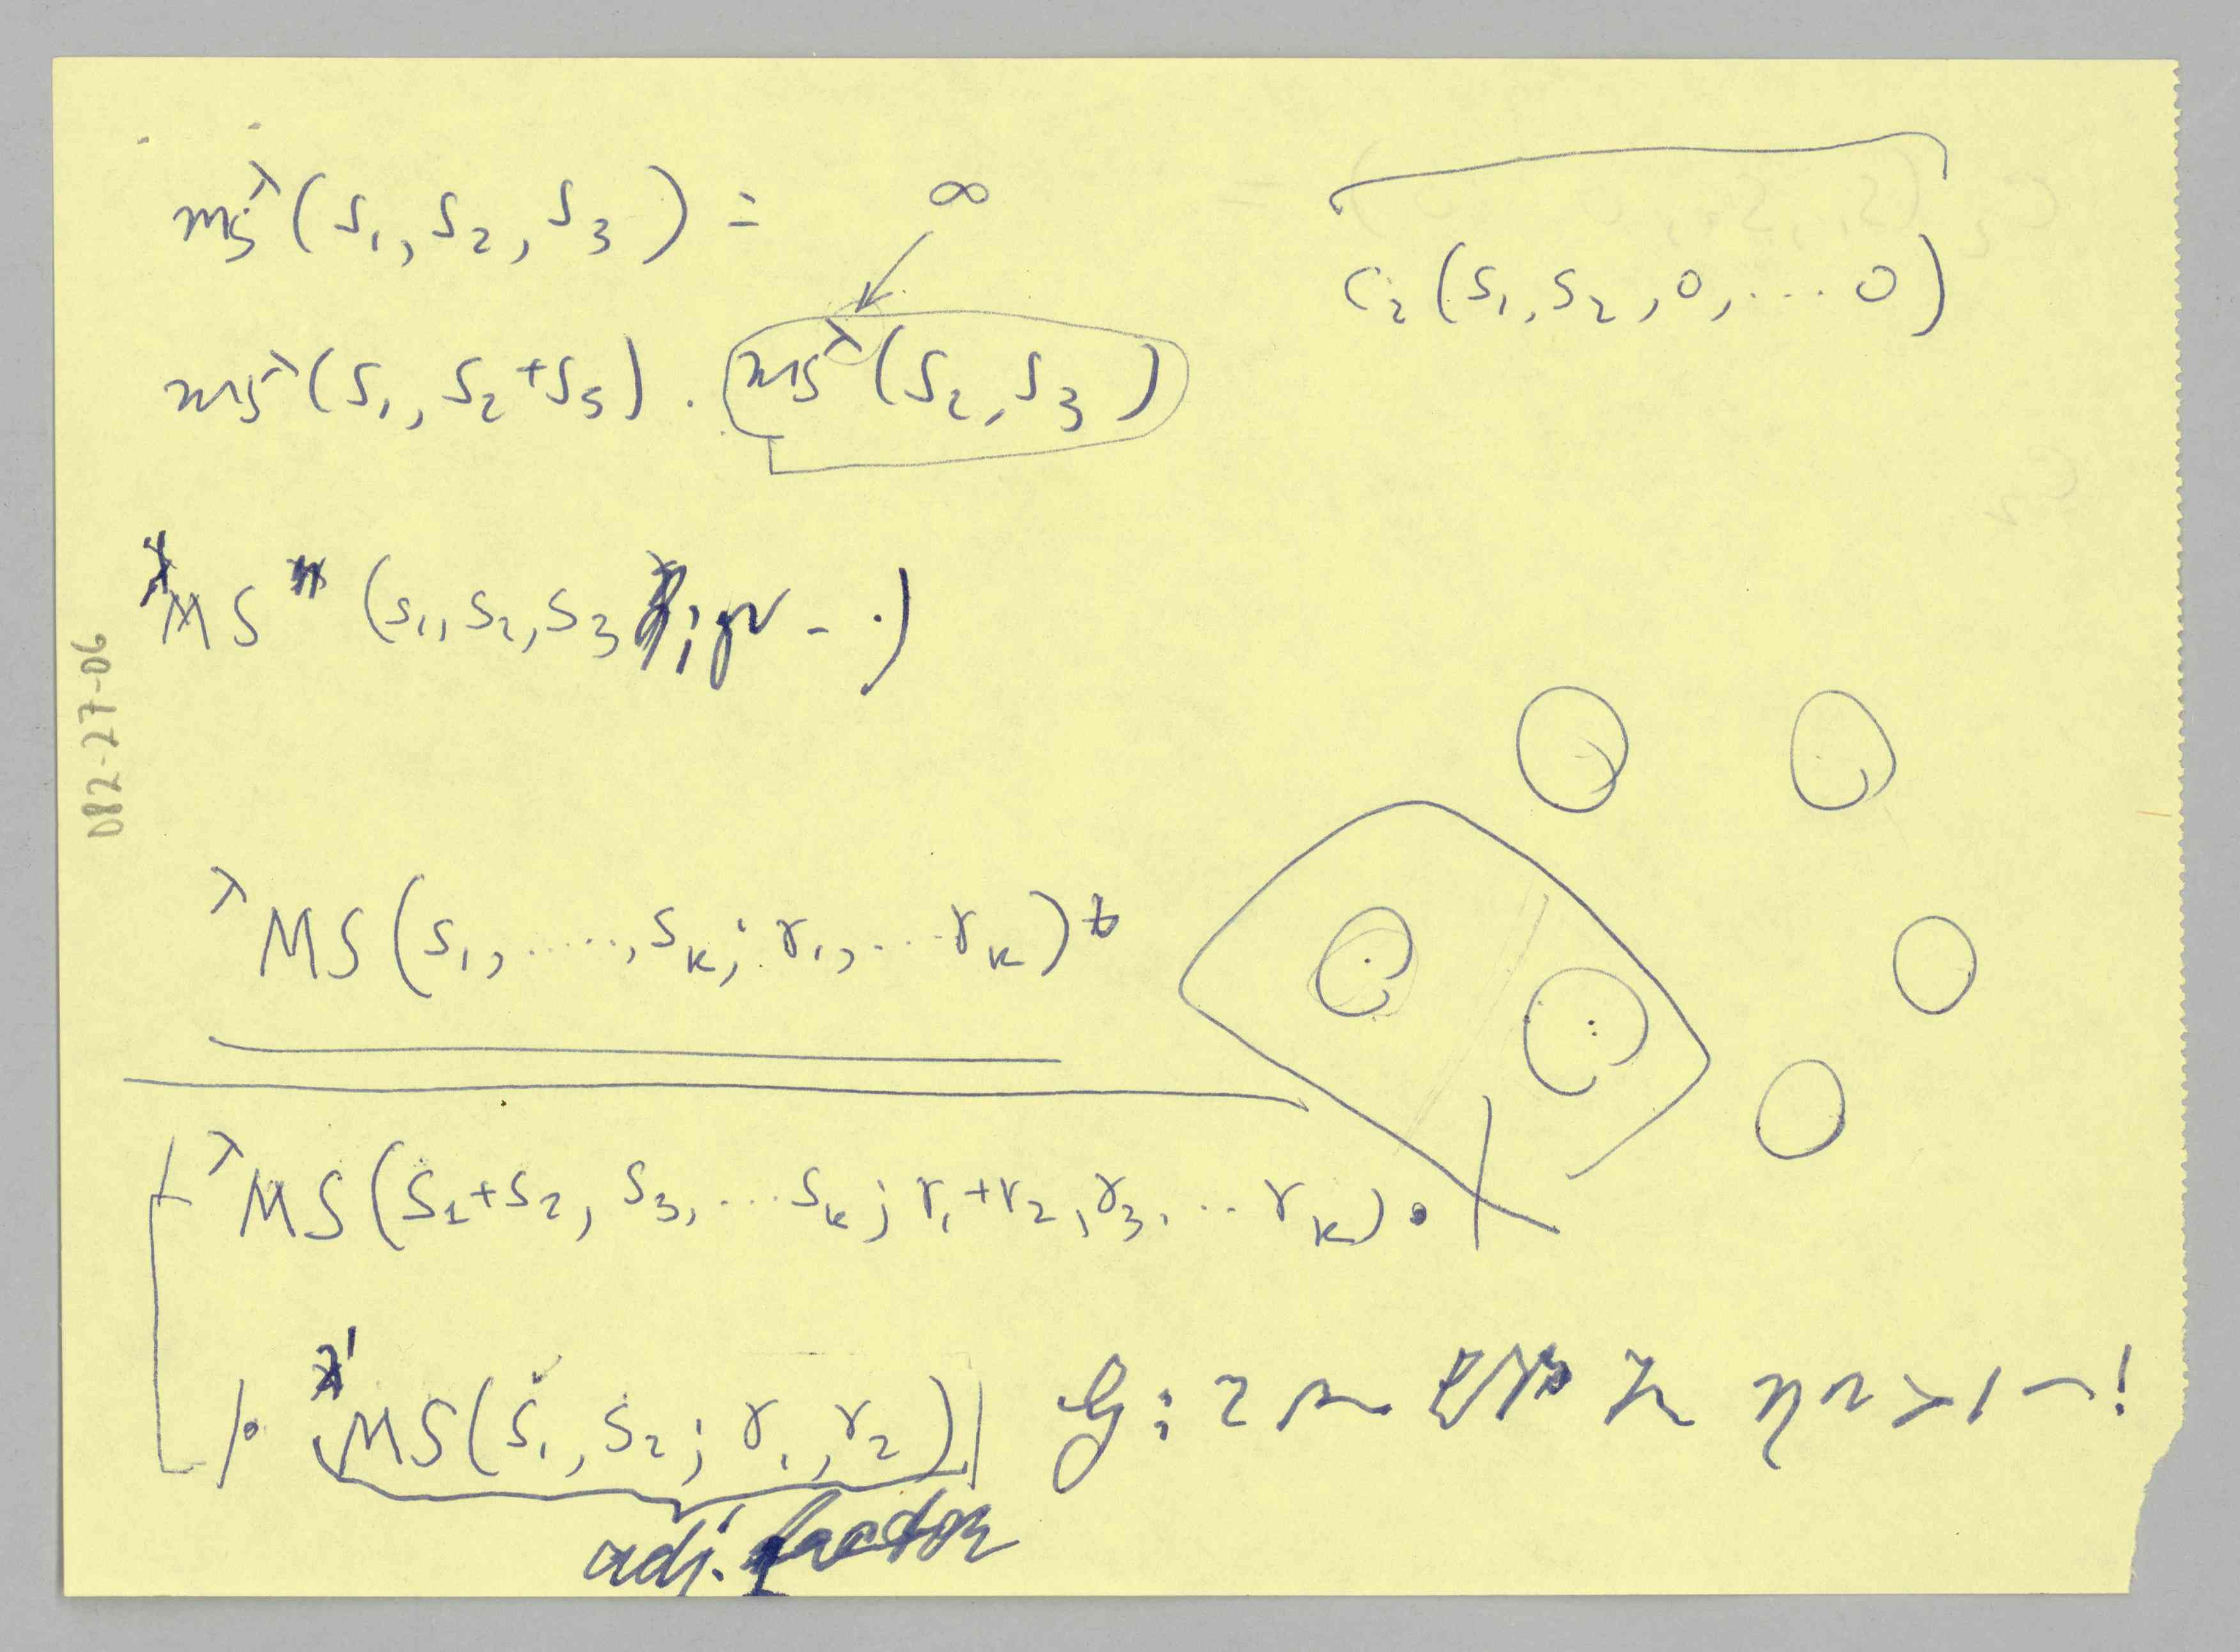 ms^λ(s₁, s₂, s₃) =
∞
ms^λ(s₁, s₂+s₃) · ms^λ(s₂, s₃)
C₂(s₁, s₂, 0, .... 0)
MS (s₁, s₂, s₃ ;
082-27-06
^λMS(s₁, ....., s_k; r₁, ... r_k)
^λMS(s₁+s₂, s₃, ... s_k; r₁+r₂, r₃, ... r_k) ·
· MS(s₁, s₂; r₁, r₂)
adj. factor